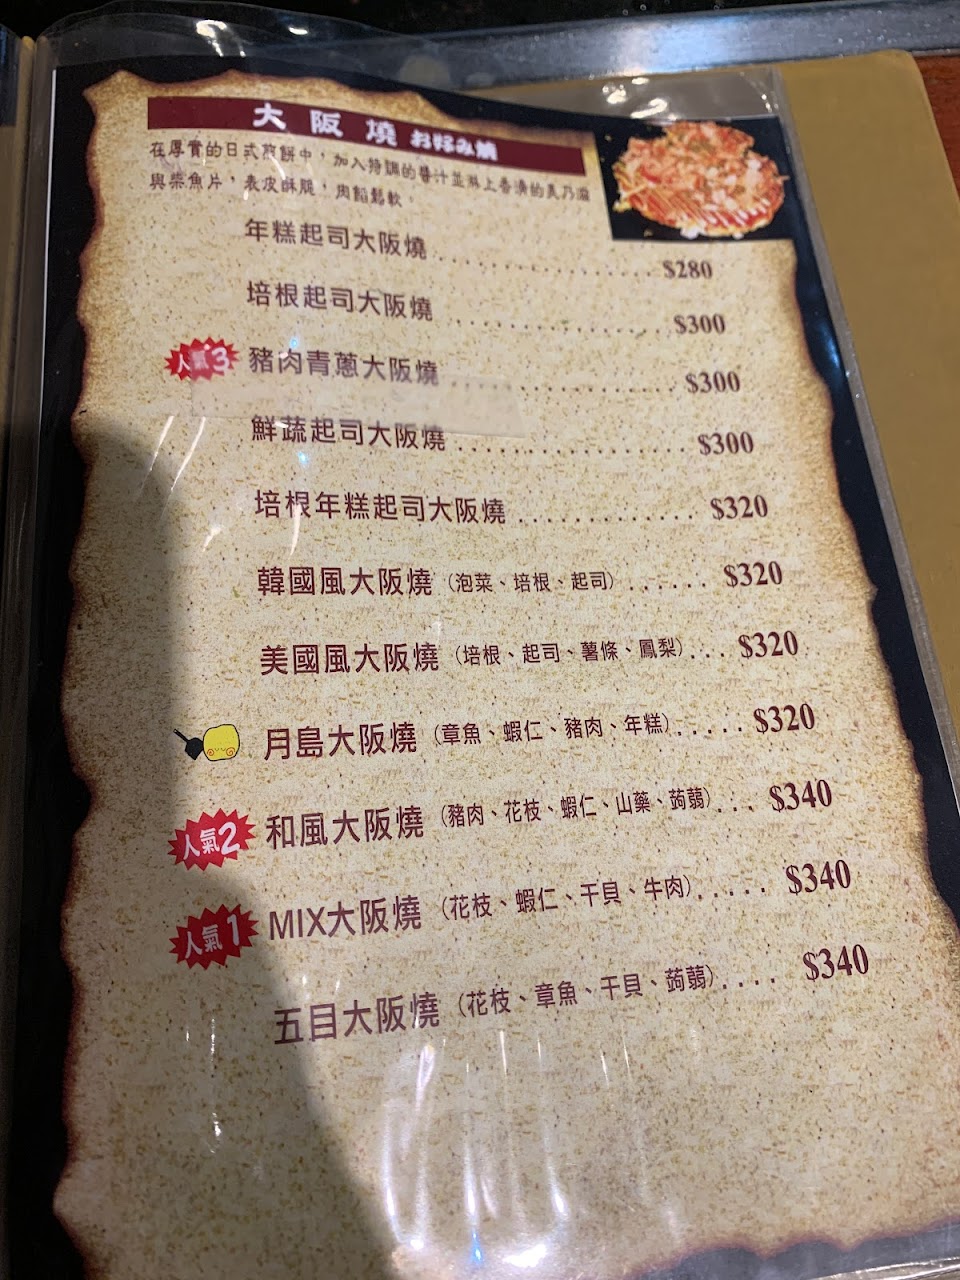 大阪燒 お好み燒
在厚實的日式煎餅中，加入特調的醬汁並淋上香濃的美乃滋
與柴魚片，表皮酥脆，肉餡鬆軟。
年糕起司大阪燒 .................. $280
培根起司大阪燒 .................. $300
人氣3 豬肉青蔥大阪燒 .................. $300
鮮蔬起司大阪燒 .................. $300
培根年糕起司大阪燒 ............. $320
韓國風大阪燒（泡菜、培根、起司）...... $320
美國風大阪燒（培根、起司、薯條、鳳梨）... $320
月島大阪燒（章魚、蝦仁、豬肉、年糕）..... $320
人氣2 和風大阪燒（豬肉、花枝、蝦仁、山藥、蒟蒻）... $340
人氣1 MIX大阪燒（花枝、蝦仁、干貝、牛肉）..... $340
五目大阪燒（花枝、章魚、干貝、蒟蒻）.... $340